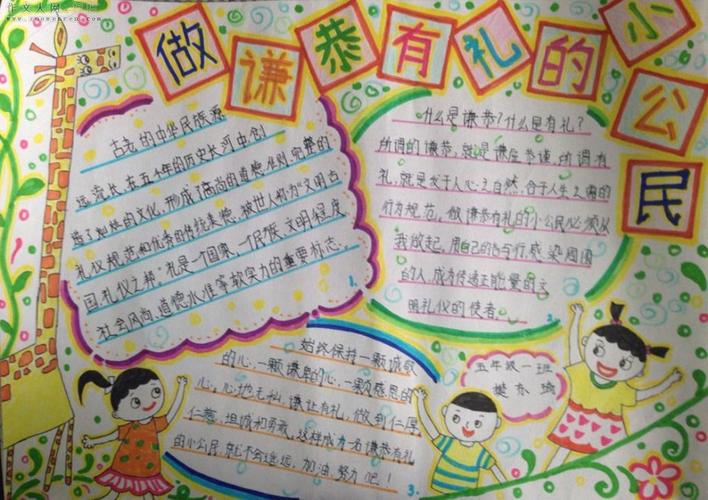 作文人网
做谦恭有礼的小公民
古老的中华民族源
远流长，在五千年的历史长河中，创
造了灿烂的文化，形成了高尚的道德准则、完整的
礼仪规范和优秀的传统美德，被世人称为"文明古
国，礼仪之邦"。礼是一个国家、一个民族文明程度、
社会风尚、道德水准等软实力的重要标志。
1.
什么是谦恭？什么是有礼？
所谓的谦恭，就是谦虚节谨，所谓有
礼，就是发于人心之自然，合于人生之需的
行为规范，做谦恭有礼的小公民必须从
我做起，用自己的言与行，感染周围
的人，成为传递正能量的文
明礼仪的使者。
2.
始终保持一颗诚敬
的心，一颗谦卑的心，一颗感恩的
心；心地无私，谦让有礼，做到仁厚
仁慈，坦诚和勇敢，这样成为一名谦恭有礼
的小公民，就不会遥远，加油，努力吧！
3.
五年级一班
樊东瑜